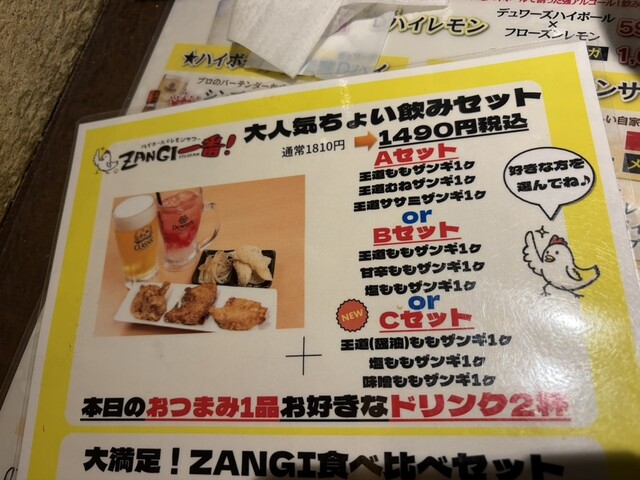 デュワーズハイボール
×
フローズンレモン
ハイレモン
★ハイボ
プロのバーテンダー
ハイボール&レモンサワー
ZANGI一番!
大人気ちょい飲みセット
通常1810円
1490円税込
Aセット
王道ももザンギ1ヶ
王道むねザンギ1ヶ
王道ササミザンギ1ヶ
or
Bセット
王道ももザンギ1ヶ
甘辛ももザンギ1ヶ
塩ももザンギ1ヶ
or
NEW
Cセット
王道(醤油)ももザンギ1ヶ
塩ももザンギ1ヶ
味噌ももザンギ1ヶ
好きな方を
選んでね♪
CLASSIC
Dewar's
+
本日のおつまみ1品お好きなドリンク2杯
大満足!ZANGI食べ比べセット